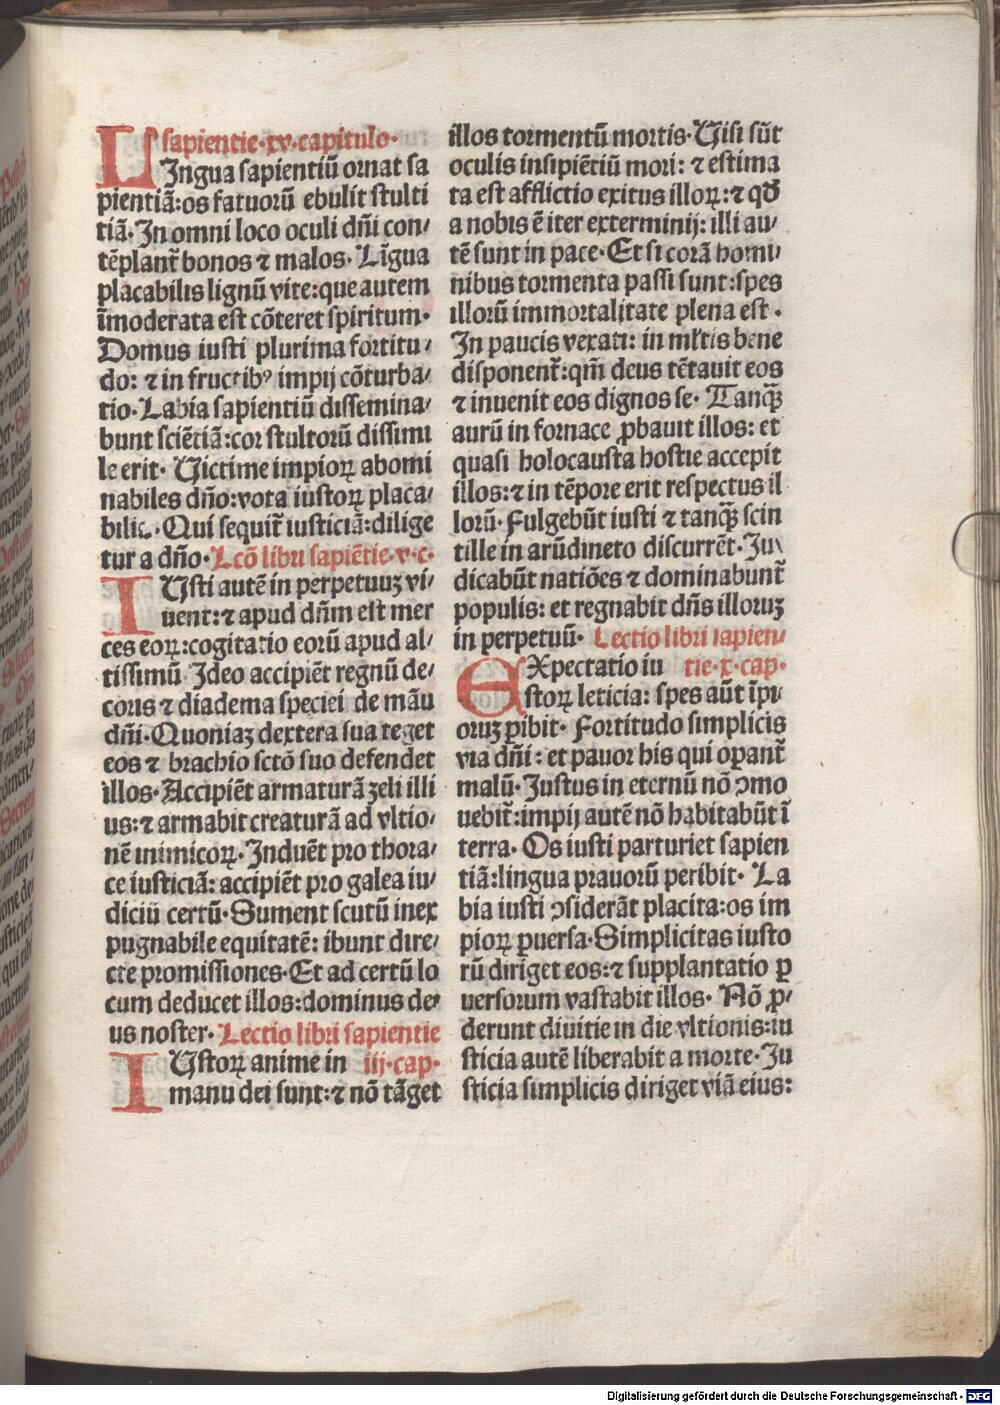 sapientie·xv·capitulo·
LIngua sapientiū ornat sa
pientiā:os fatuorū ebulit stulti
tiā·In omni loco oculi dñi con⸗
tēplant᷑ bonos ⁊ malos· Līgua
placabilis lignū vite:que autem
īmoderata est cōteret spiritum·
Domus iusti plurima fortitu⸗
do: ⁊ in fructibꝰ impij cōturba⸗
tio·Labia sapientiū dissemina⸗
bunt sciētiā:cor stultorū dissimi
le erit· Uictime impioꝝ abomi
nabiles dño:vota iustoꝝ placa⸗
bilia·Qui sequit᷑ iusticiā:dilige
tur a dño·Lcō libri sapiētie·v·c·
IUsti autē in perpetuuʒ vi⸗
uent:⁊ apud dñm est mer
ces eoꝝ:cogitatio eorū apud al⸗
tissimū Ideo accipiēt regnū de⸗
coris ⁊ diadema speciei de māu
dñi·Quoniaʒ dextera sua teget
eos ⁊ brachio sctō suo defendet
illos·Accipiēt armaturā zeli illi
us:⁊ armabit creaturā ad vltio⸗
nē inimicoꝝ·Induēt pro thora⸗
ce iusticiā: accipiēt pro galea iu⸗
diciū certū·Sument scutū inex
pugnabile equitatē: ibunt dire⸗
cte promissiones·Et ad certū lo
cum deducet illos:dominus de⸗
us noster·Lectio libri sapientie
IUstoꝝ anime in iij·cap·
manu dei sunt:⁊ nō tāget
illos tormentū mortis·Uisi sūt
oculis insipiētiū mori: ⁊ estima
ta est afflictio exitus illoꝝ:⁊ qđ
a nobis ē iter exterminij: illi au⸗
tē sunt in pace·Et si corā homi⸗
nibus tormenta passi sunt:spes
illorū immortalitate plena est·
In paucis vexati: in mł̓tis bene
disponent᷑:qm̄ deus tētauit eos
⁊ inuenit eos dignos se· Tanqꝫ
aurū in fornace ꝓbauit illos: et
quasi holocausta hostie accepit
illos:⁊ in tēpore erit respectus il
lorū·Fulgebūt iusti ⁊ tanqꝫ scin
tille in arūdineto discurrēt·Iu⸗
dicabūt natiōes ⁊ dominabunt᷑
populis: et regnabit dñs illoruʒ
in perpetuū· Lectio libri sapien⸗
EXpectatio iu tie·x·cap·
stoꝝ leticia: spes aūt īpi⸗
oruʒ ꝑibit· Fortitudo simplicis
via dñi: et pauor his qui oꝑant᷑
malū·Iustus in eternū nō ꝯmo
uebit᷑:impij autē nō habitabūt ī
terra· Os iusti parturiet sapien
tiā:lingua prauorū peribit· La
bia iusti ꝯsiderāt placita:os im
pioꝝ ꝑuersa·Simplicitas iusto
rū diriget eos:⁊ supplantatio ꝑ
uersorum vastabit illos· Nō ꝓ⸗
derunt diuitie in die vltionis:iu
sticia autē liberabit a morte·Iu
sticia simplicis diriget viā eius:
Digitalisierung gefördert durch die Deutsche Forschungsgemeinschaft · DFG